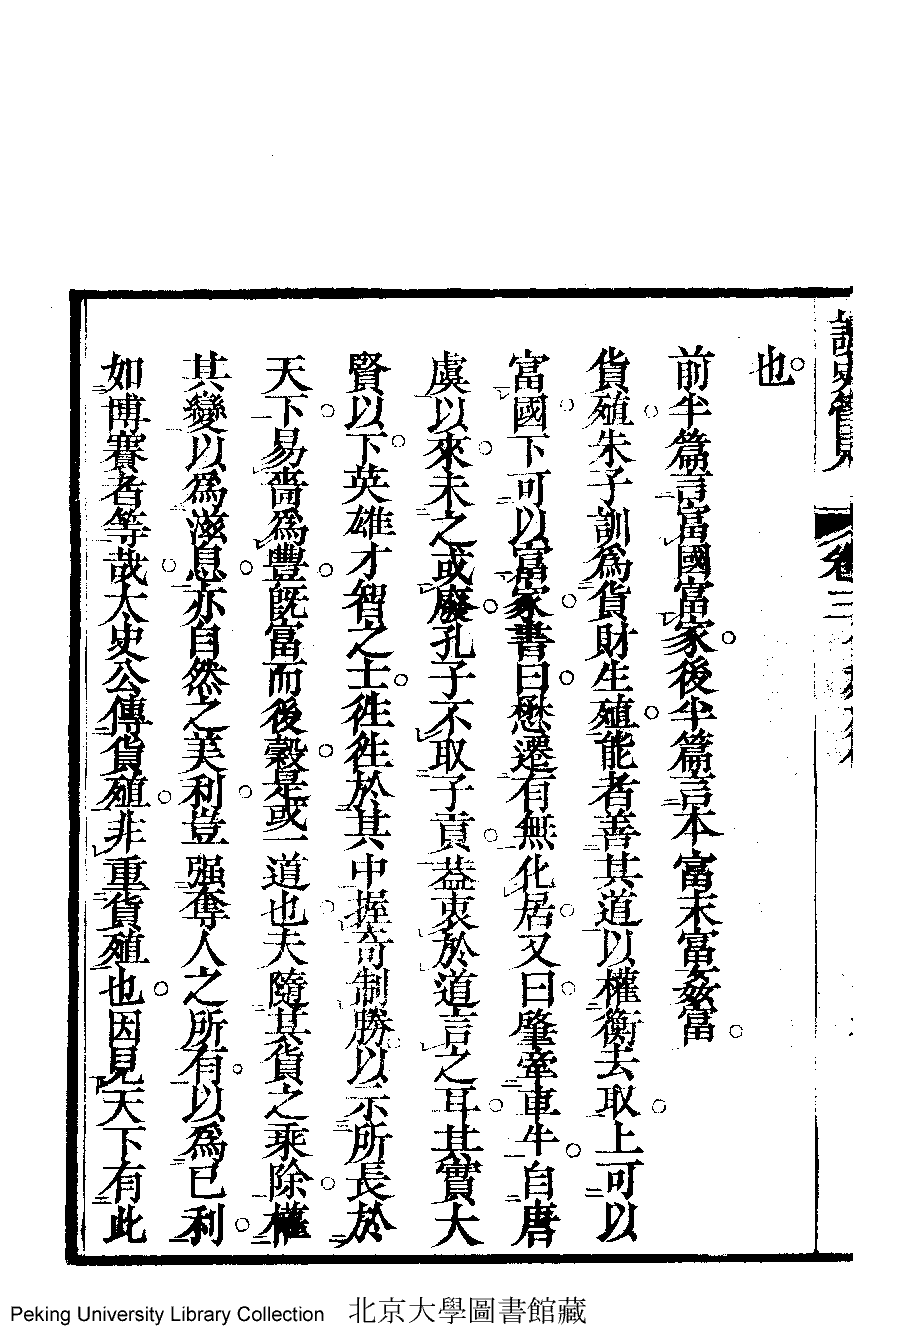 也
前半篇言富國富家後半篇言本富末富姦富
貨殖朱子訓為貨財生殖能者善其道以權衡去取上可以
富國下可以富家書曰懋遷有無化居又曰肇牽車牛自唐
虞以來未之或廢孔子不取子貢葢衷於道言之耳其實大
賢以下英雄才智之士徃徃於其中握奇制勝以示所長於
天下易嗇爲豐旣富而後穀是或一道也夫隨其貨之乘除權
其變以爲滋息亦自然之美利豈强奪人之所有以爲己利
如博賽者等哉太史公傳貨殖非重貨殖也因見天下有此
卷三
Peking University Library Collection 北京大學圖書館藏